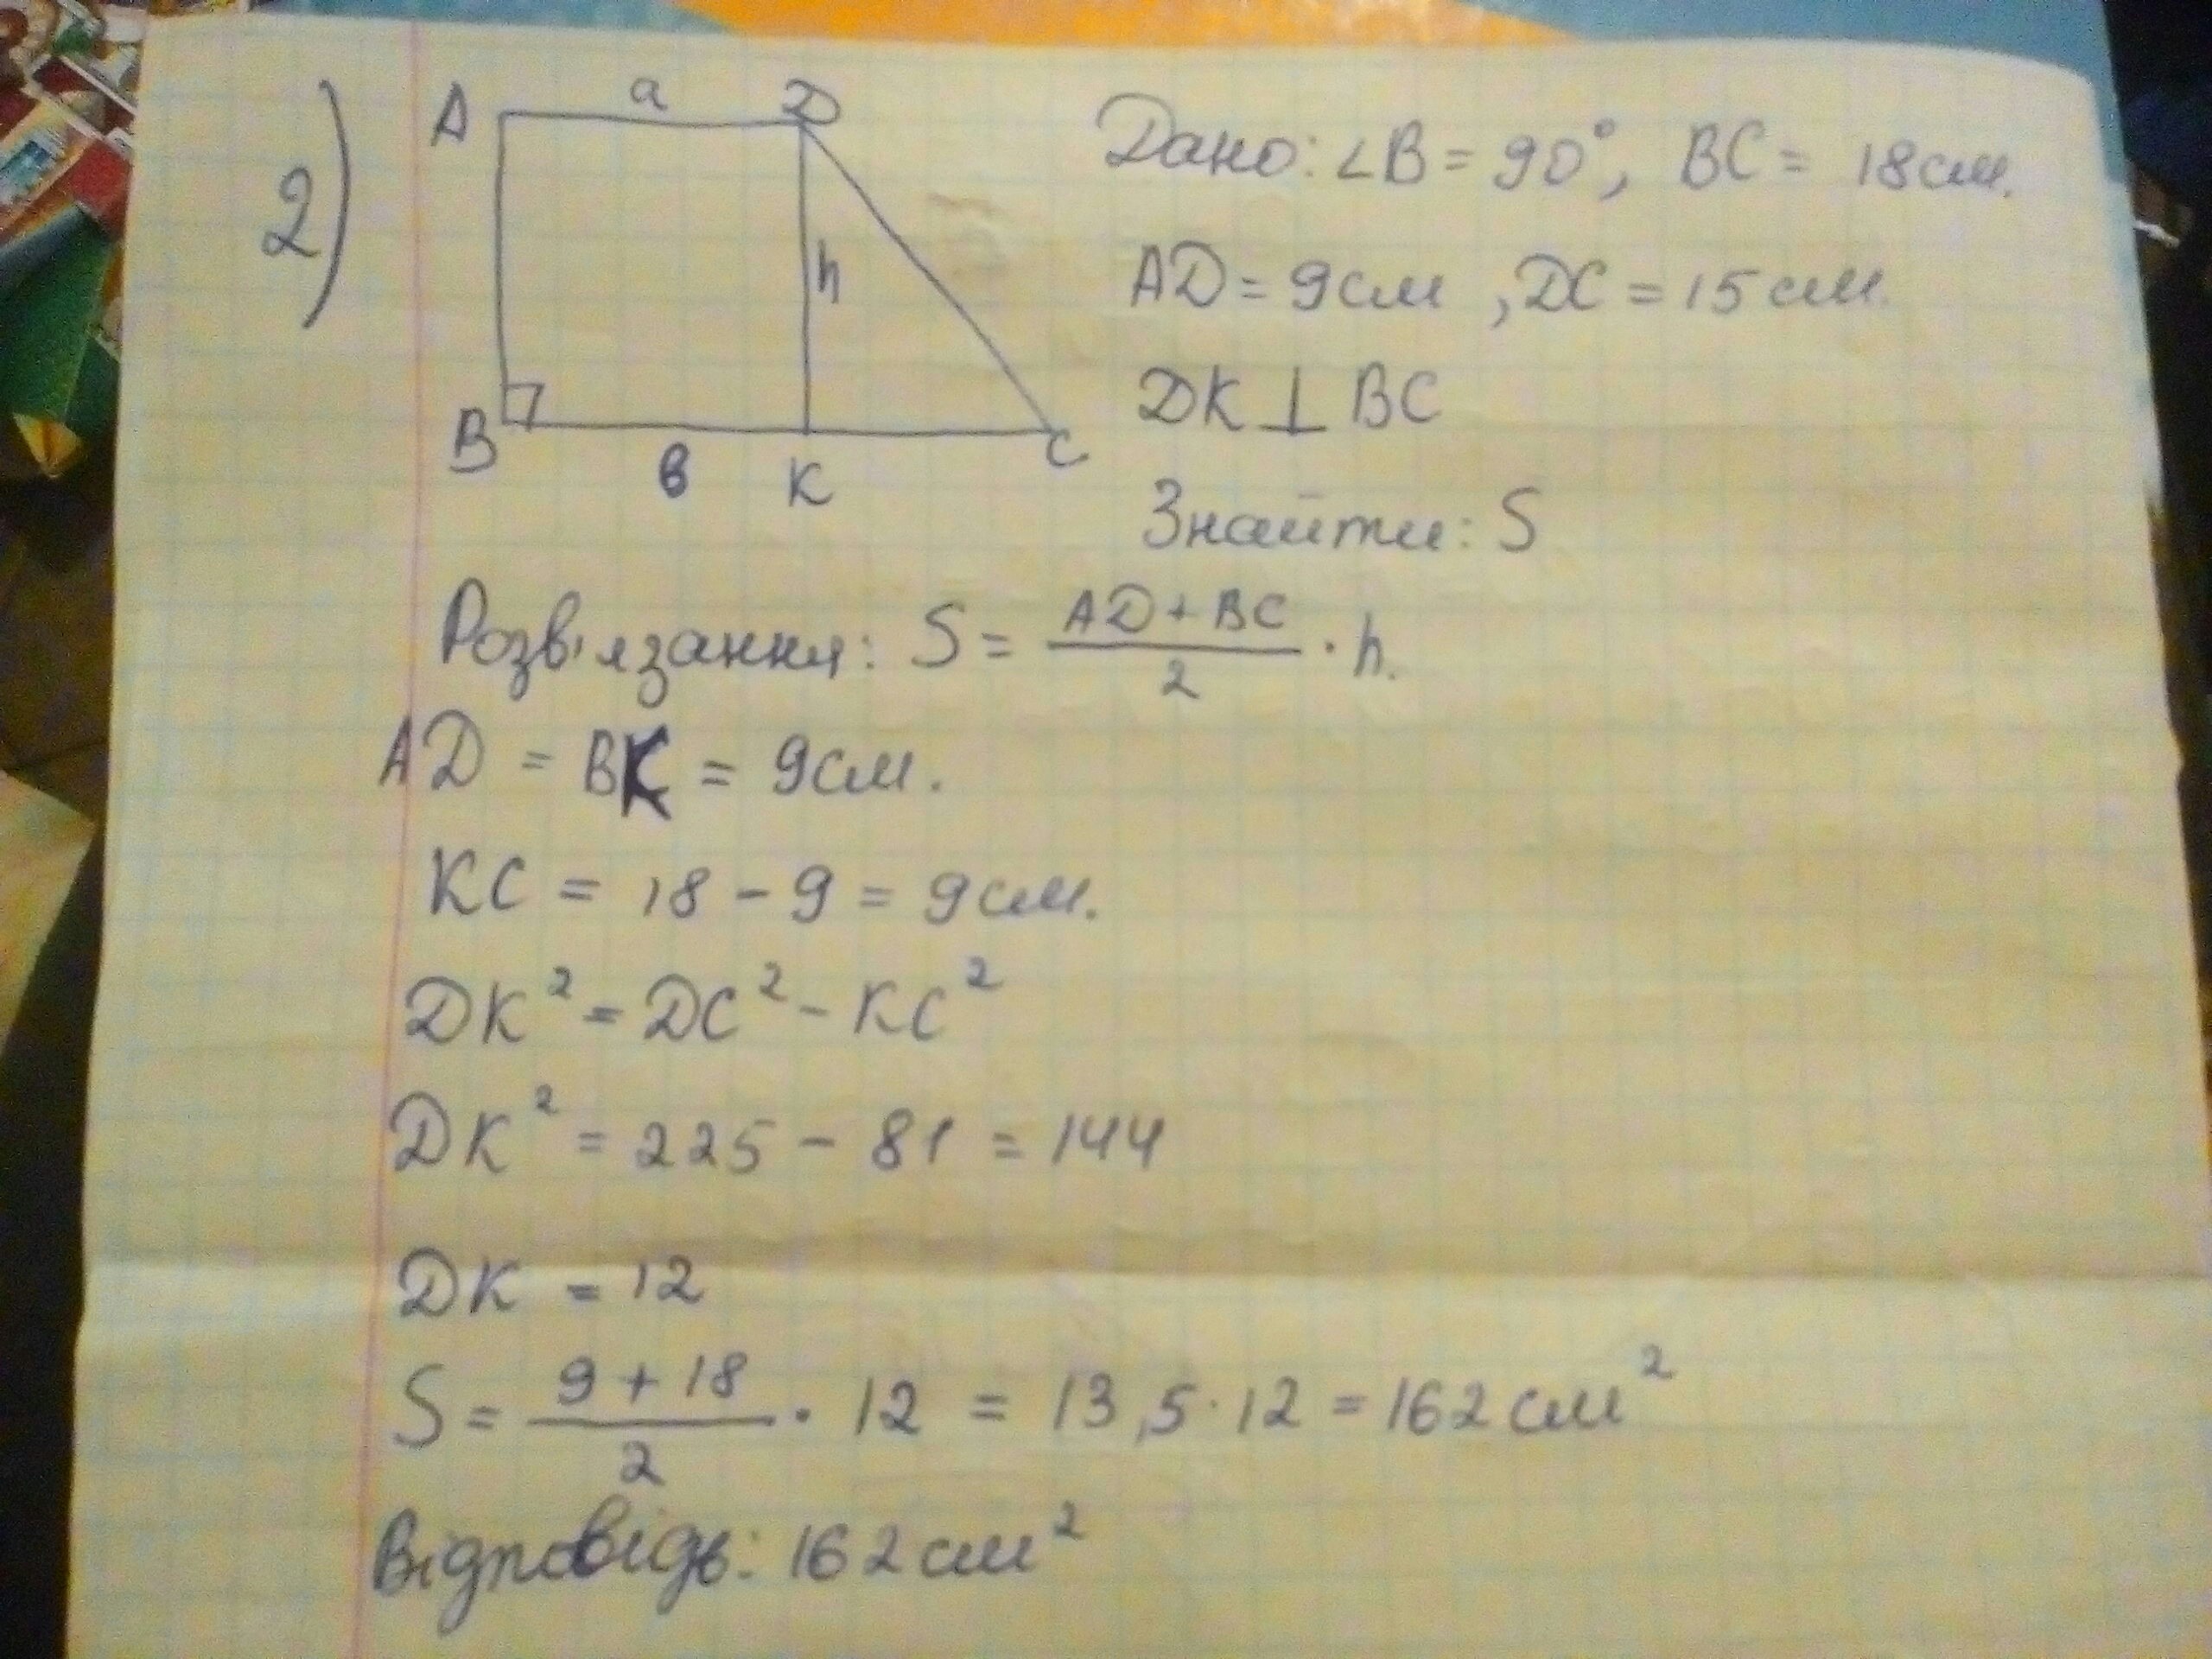 2)
A a D
h
B в K C
Дано: ∠B = 90°, BC = 18см.
AD = 9см, DC = 15см.
DK ⊥ BC
Знайти: S
Розв'язання: S = (AD + BC)/2 · h.
AD = BK = 9см.
KC = 18 - 9 = 9см.
DK² = DC² - KC²
DK² = 225 - 81 = 144
DK = 12
S = (9 + 18)/2 · 12 = 13,5 · 12 = 162 см²
Відповідь: 162 см²